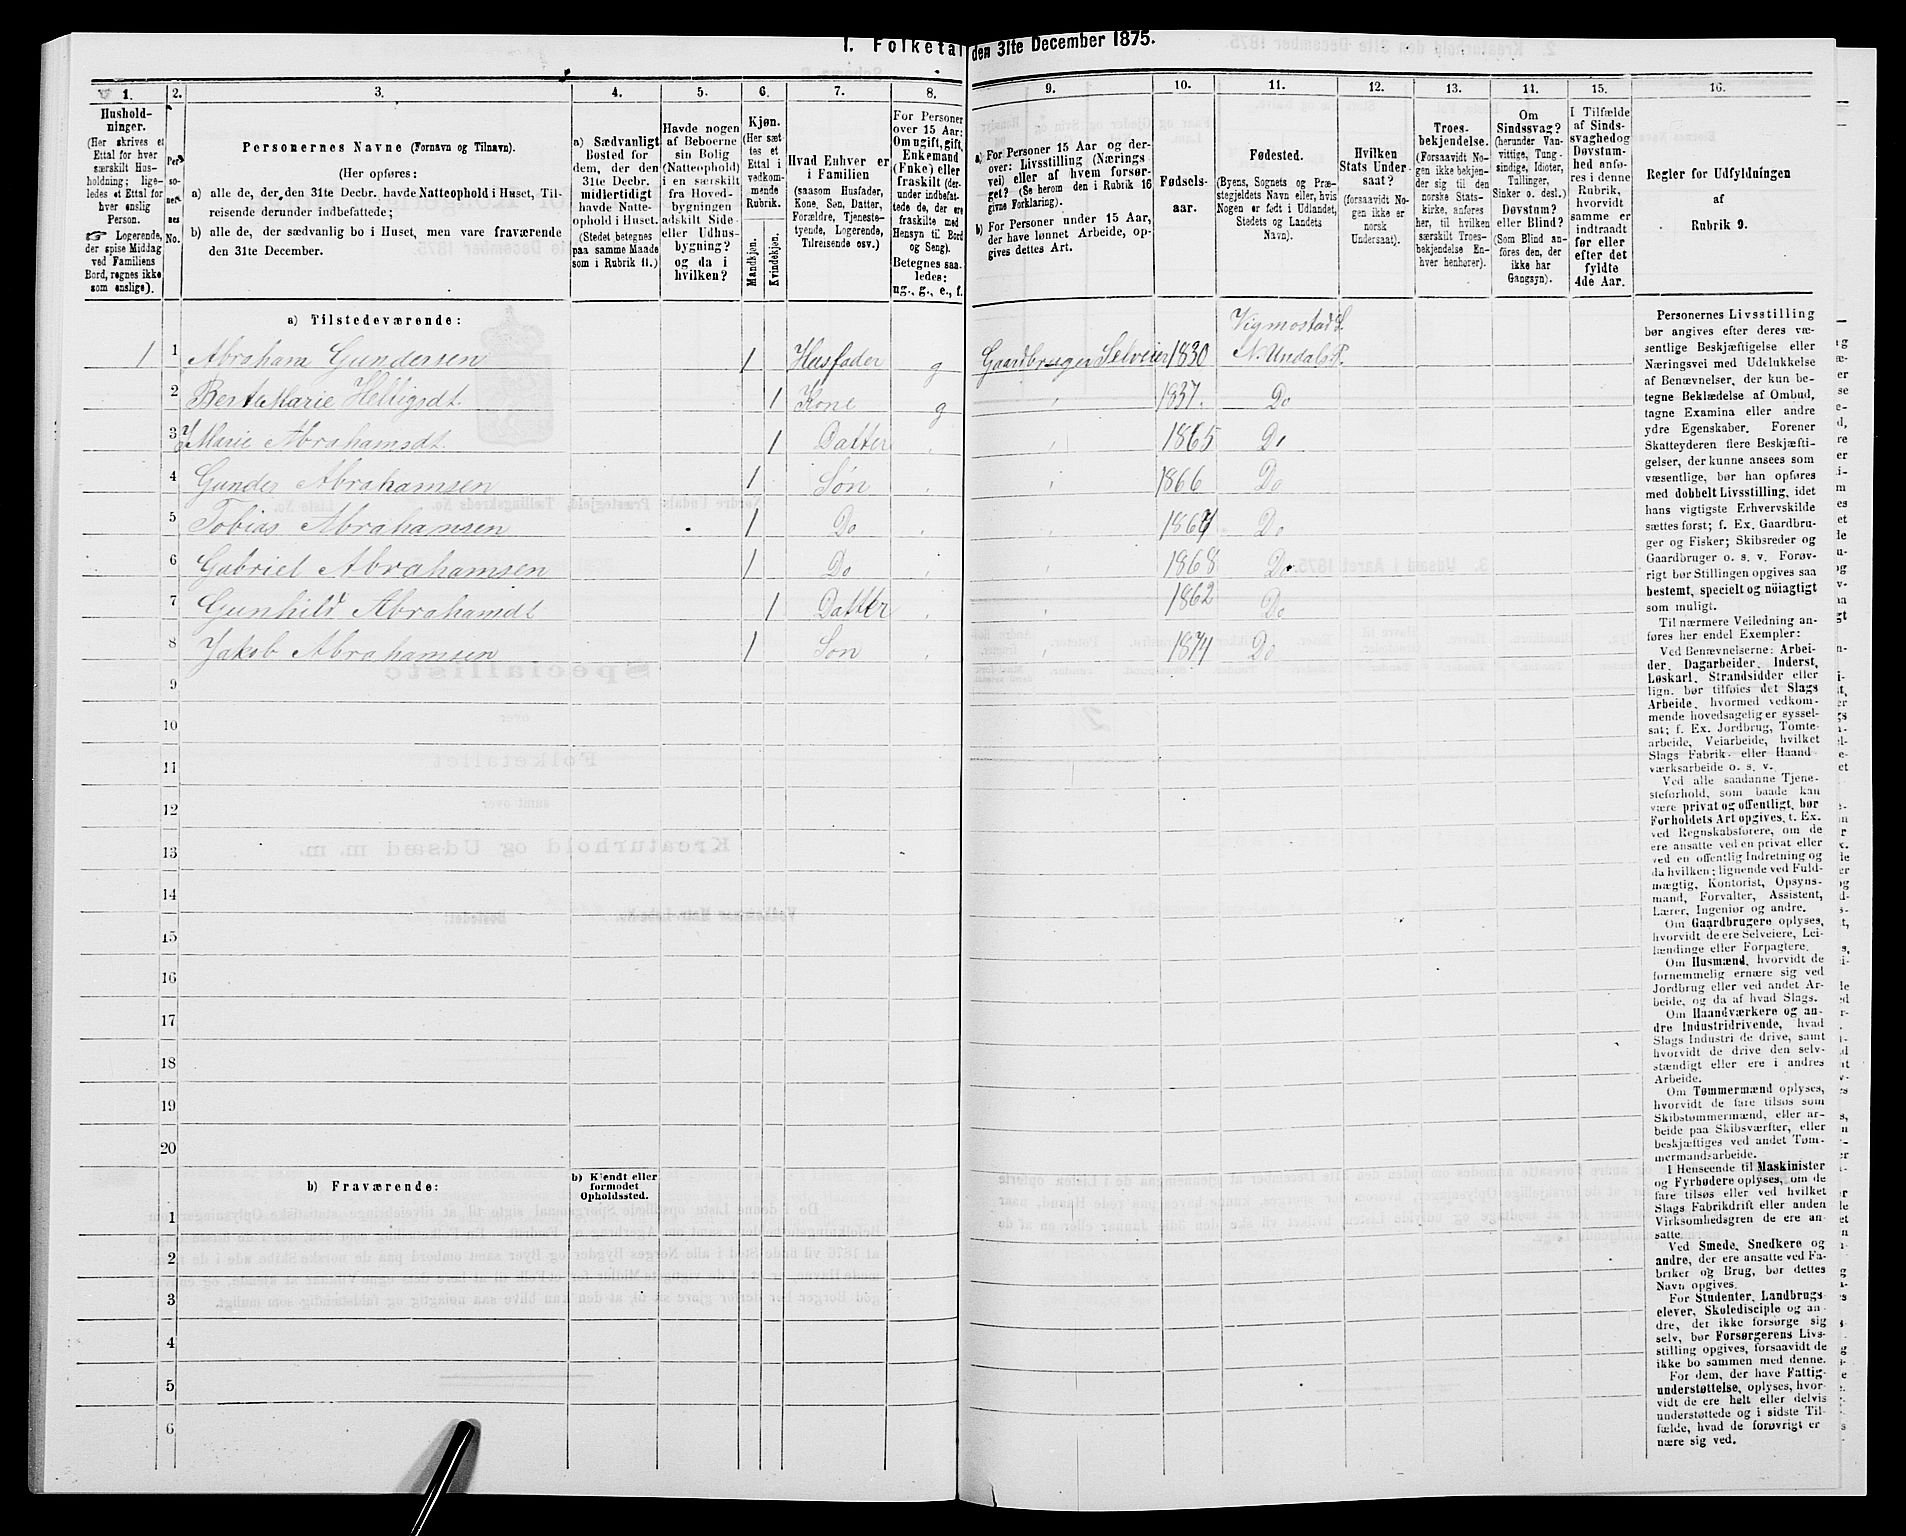 1. Folketal den 31te December 1875.
1. 2. 3. 4. 5. 6. 7. 8. 9. 10. 11. 12. 13. 14. 15. 16.
Hushold-
ninger.
(Her skrives et
Ettal for hver
særskilt Hus-
holdning; lige-
ledes et Ettal for
hver enslig
Person.
Logerende,
der spise Middag
ved Familiens
Bord, regnes ikke
som enslige).
Per-
so-
ner-
nes
No.
Personernes Navne (Fornavn og Tilnavn).
(Her opføres:
a) alle de, der den 31te Decbr. havde Natteophold i Huset, Til-
reisende derunder indbefattede;
b) alle de, der sædvanlig bo i Huset, men vare fraværende
den 31te December.
a) Sædvanligt
Bosted for
dem, der den
31te Decbr.
midlertidigt
havde Natte-
ophold i Huset.
(Stedet betegnes
paa samme Maade
som i Rubrik 11.)
Havde nogen
af Beboerne
sin Bolig
(Natteophold)
i en særskilt
fra Hoved-
bygningen
adskilt Side-
eller Udhus-
bygning?
og da i
hvilken?
Kjøn.
(Her sæt-
tes et
Ettal i
vedkom-
mende
Rubrik.
Mandkjøn.
Kvindekjøn.
Hvad Enhver er
i Familien
(saasom Husfader,
Kone, Søn, Datter,
Forældre, Tjeneste-
tyende, Logerende,
Tilreisende osv.)
For Personer
over 15 Aar:
Om ugift, gift,
Enkemand
(Enke) eller
fraskilt (der-
under indbefat-
tede de, der ere
fraskilte med
Hensyn til Bord
og Seng).
Betegnes saa-
ledes:
ug., g., e., f.
a) For Personer 15 Aar og der-
over: Livsstilling (Nærings-
vei) eller af hvem forsør-
get? (Se herom den i Rubrik 16
givne Forklaring).
b) For Personer under 15 Aar,
der have lønnet Arbeide, op-
gives dettes Art.
Fødsels-
aar.
Fødested.
(Byens, Sognets og Præ-
stegjeldets Navn eller, hvis
Nogen er født i Udlandet,
Stedets og Landets
Navn).
Hvilken
Stats Under-
saat?
(forsaavidt No-
gen ikke er
norsk
Undersaat).
Troes-
bekjendelse.
(Forsaavidt No-
gen ikke bekjen-
der sig til den
norske Stats-
kirke, anføres
her, til hvilken
særskilt Troes-
bekjendelse En-
hver henhører).
Om
Sindssvag?
(herunder Van-
vittige, Tung-
sindige, Idioter,
Tullinger,
Sinker o. desl.)
Døvstum?
eller Blind?
(Som Blind an-
føres den, der
ikke har
Gangsyn).
I Tilfælde
af Sinds-
svaghed og
Døvstum-
hed anfø-
res i denne
Rubrik,
hvorvidt
samme er
indtraadt
før eller
efter det
fyldte
4de Aar.
Regler for Udfyldningen
af
Rubrik 9.
a) Tilstedeværende:
Vigmostad S.
1 1 Abraham Gundersen 1 Husfader g Gaardbruger Selveier 1830 N. Undals P.
2 Berte Marie Helligsdt. 1 Kone g 1837. Do
3 Marie Abrahamsdt. 1 Datter 1865 Do
4 Gunder Abrahamsen 1 Søn 1866 Do
5 Tobias Abrahamsen 1 Do Do
6 Gabriel Abrahamsen 1 Do 1868 Do
7 Gunhild Abrahamdt 1 Datter 1862 Do
8 Jakob Abrahamsen 1 Søn 1874 Do
9
10
11
12
13
14
15
16
17
18
19
20
b) Fraværende:
b) Kjendt eller
formodet
Opholdssted.
1
2
3
4
5
6
Personernes Livsstilling
bør angives efter deres væ-
sentlige Beskjæftigelse eller
Næringsvei med Udelukkelse
af Benævnelser, der kun be-
tegne Beklædelse af Ombud,
tagne Examina eller andre
ydre Egenskaber. Forener
Skatteyderen flere Beskjæfti-
gelser, der kunne ansees som
væsentlige, bør han opføres
med dobbelt Livsstilling, idet
hans vigtigste Erhvervskilde
sættes først; f. Ex. Gaardbru-
ger og Fisker; Skibsreder og
Gaardbruger o. s. v. Forøv-
rigt bør Stillingen opgives saa
bestemt, specielt og nøiagtigt
som muligt.
Til nærmere Veiledning an-
føres her endel Exempler:
Ved Benævnelserne: Arbei-
der, Dagarbeider, Inderst,
Løskarl, Strandsidder eller
lign. bør tilføies det Slags
Arbeide, hvormed vedkom-
mende hovedsagelig er syssel-
sat; f. Ex. Jordbrug, Tomte-
arbeide, Veiarbeide, hvilket
Slags Fabrik- eller Haand-
værksarbeide o. s. v.
Ved alle saadanne Tjene-
steforhold, som baade kan
være privat og offentligt, bør
Forholdets Art opgives, t. Ex.
ved Regnskabsførere, om de
ere ansatte ved en privat eller
ved en offentlig Indretning og
da hvilken; lignende ved Fuld-
mægtig, Kontorist, Opsyns-
mand, Forvalter, Assistent,
Lærer, Ingeniør og andre.
Om Gaardbrugere oplyses,
hvorvidt de ere Selveiere, Lei-
lændinge eller Forpagtere.
Om Husmænd, hvorvidt de
fornemmelig ernære sig ved
Jordbrug eller ved andet Ar-
beide, og da af hvad Slags.
Om Haandværkere og an-
dre Industridrivende, hvad
Slags Industri de drive, samt
hvorvidt de drive den selv-
stændigt eller ere i andres
Arbeide.
Om Tømmermænd oplyses,
hvorvidt de fare tilsøs som
Skibstømmermænd, eller ar-
beide paa Skibsværfter, eller
beskjæftiges ved andet Tøm-
mermandsarbeide.
I Henseende til Maskinister
og Fyrbødere oplyses, om de
fare tilsøs eller ved hvilket
Slags Fabrikdrift eller anden
Virksomhedsgren de ere an-
satte.
Ved Smede, Snedkere og
andre, der ere ansatte ved Fa-
briker og Brug, bør dettes
Navn opgives.
For Studenter, Landbrugs-
elever, Skoledisciple og an-
dre, der ikke forsørge sig
selv, bør Forsørgerens Livs-
stilling opgives, forsaavidt de
ikke bo sammen med denne.
For dem, der have Fattig-
understøttelse, oplyses, hvor-
vidt de ere helt eller delvis
understøttede og i sidste Til-
fælde, hvad de forøvrigt er-
nære sig ved.